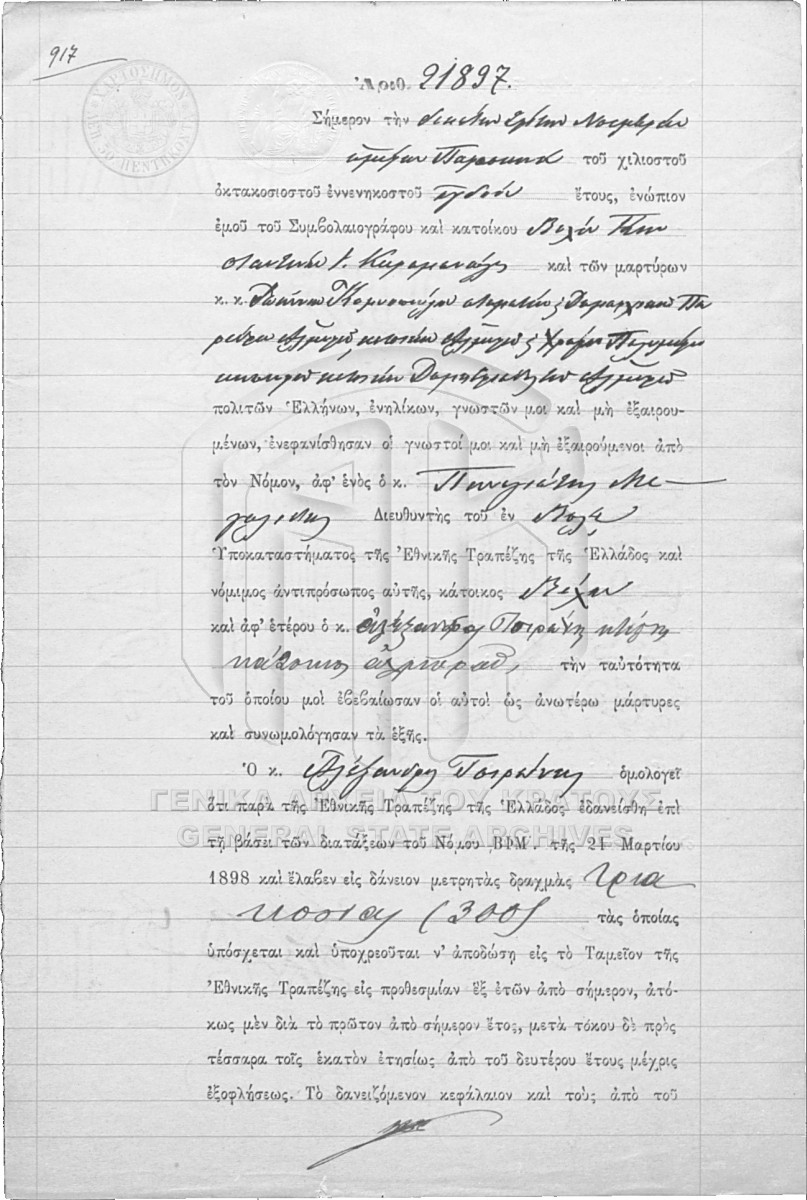 917
ΧΑΡΤΟΣΗΜΟΝ
Ἀριθ. 21897.
Σήμερον τὴν Νοεμβρίου
ἡμέραν Παρασκευὴν τοῦ χιλιοστοῦ
ὀκτακοσιοστοῦ ἐννενηκοστοῦ ὀγδόου ἔτους, ἐνώπιον
ἐμοῦ τοῦ Συμβολαιογράφου καὶ κατοίκου Βόλου Κων
σταντίνου Ι. καὶ τῶν μαρτύρων
κ. κ.
πολιτῶν Ἑλλήνων, ἐνηλίκων, γνωστῶν μοι καὶ μὴ ἐξαιρου-
μένων, ἐνεφανίσθησαν οἱ γνωστοί μοι καὶ μὴ ἐξαιρούμενοι ἀπὸ
τὸν Νόμον, ἀφ' ἑνὸς ὁ κ. Παναγιώτης Με-
γαλίδης Διευθυντὴς τοῦ ἐν Βόλῳ
Ὑποκαταστήματος τῆς Ἐθνικῆς Τραπέζης τῆς Ἑλλάδος καὶ
νόμιμος ἀντιπρόσωπος αὐτῆς, κάτοικος Βόλου
καὶ ἀφ' ἑτέρου ὁ κ. Ἀλέξανδρος Τσιρώνης κτίστης
κάτοικος Ἁλμυροῦ, τὴν ταὐτότητα
τοῦ ὁποίου μοὶ ἐβεβαίωσαν οἱ αὐτοὶ ὡς ἀνωτέρω μάρτυρες
καὶ συνωμολόγησαν τὰ ἑξῆς.
Ὁ κ. Ἀλέξανδρος Τσιρώνης ὁμολογεῖ
ΓΕΝΙΚΑ ΑΡΧΕΙΑ ΤΟΥ ΚΡΑΤΟΥΣ
ὅτι παρὰ τῆς Ἐθνικῆς Τραπέζης τῆς Ἑλλάδος ἐδανείσθη ἐπὶ
GENERAL STATE ARCHIVES
τῇ βάσει τῶν διατάξεων τοῦ Νόμου ΒΦΜ'. τῆς 21 Μαρτίου
1898 καὶ ἔλαβεν εἰς δάνειον μετρητὰς δραχμὰς τρια
κοσίας (300) τὰς ὁποίας
ὑπόσχεται καὶ ὑποχρεοῦται ν' ἀποδώσῃ εἰς τὸ Ταμεῖον τῆς
Ἐθνικῆς Τραπέζης εἰς προθεσμίαν ἓξ ἐτῶν ἀπὸ σήμερον, ἀτό-
κως μὲν διὰ τὸ πρῶτον ἀπὸ σήμερον ἔτος, μετὰ τόκου δὲ πρὸς
τέσσαρα τοῖς ἑκατὸν ἐτησίως ἀπὸ τοῦ δευτέρου ἔτους μέχρις
ἐξοφλήσεως. Τὸ δανειζόμενον κεφάλαιον καὶ τοὺς ἀπὸ τοῦ